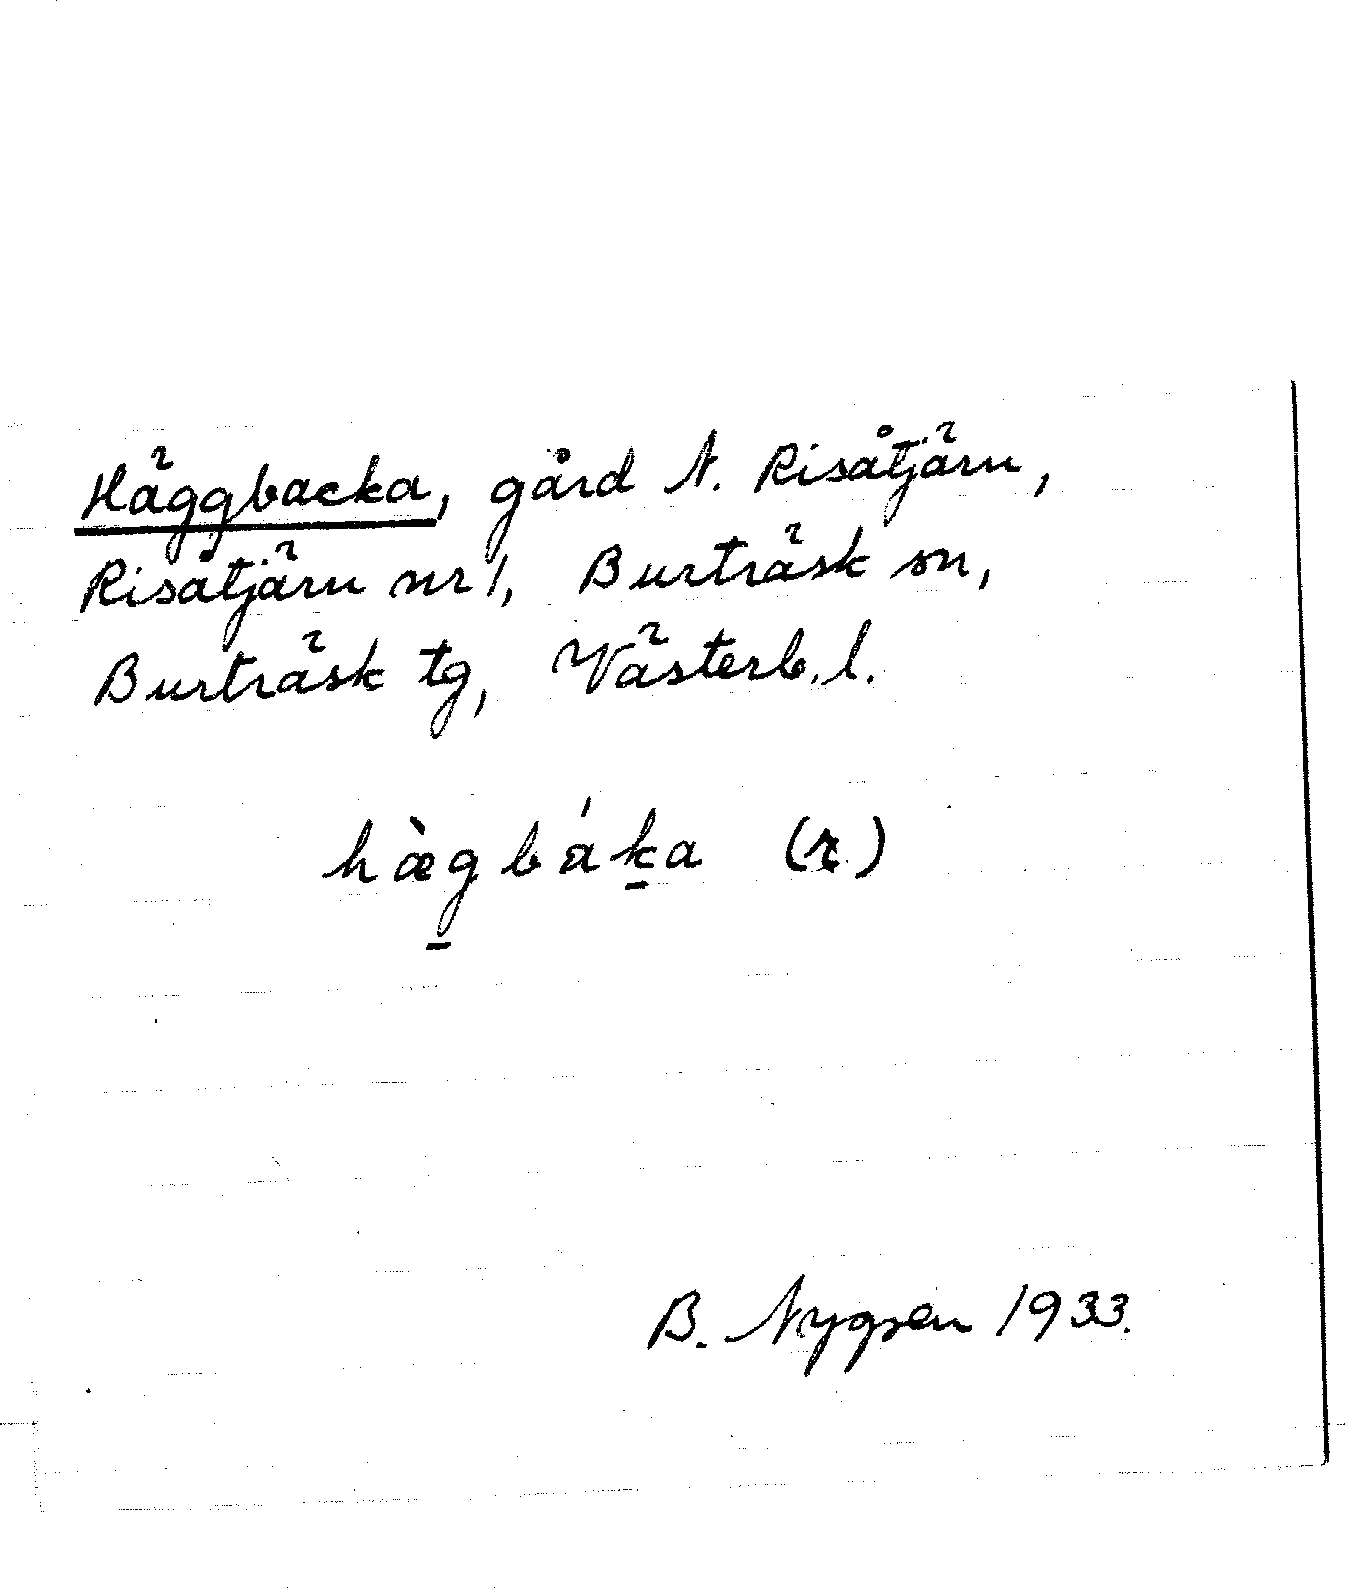 Häggbacka, gård N. Risåtjärn,
Risåtjärn nr 1, Burträsk sn,
Burträsk tg, Västerb. l.
hæ̀g̲bák̲a (r)
B. Nygren 1933.